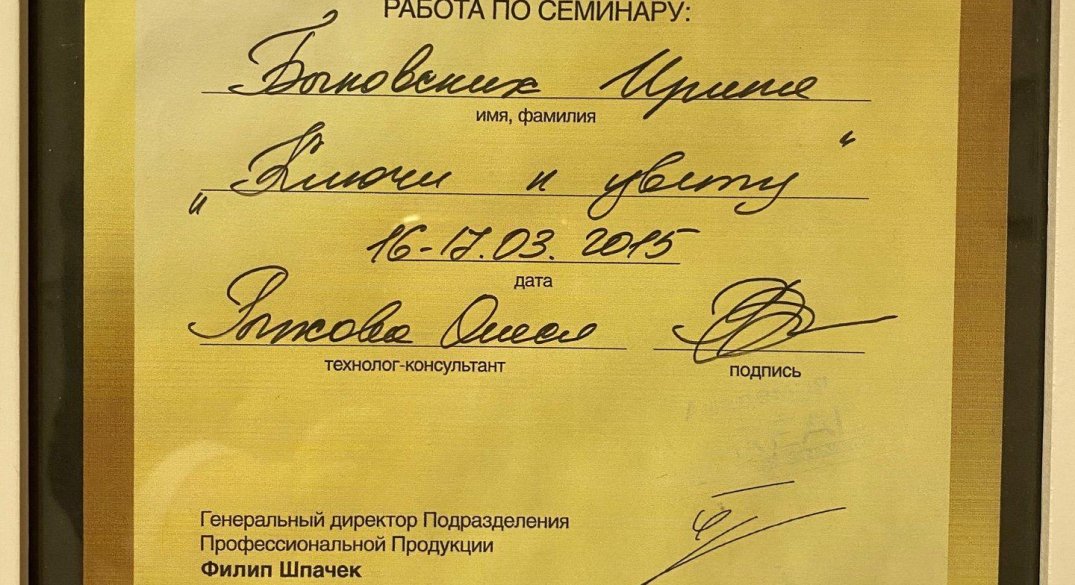 РАБОТА ПО СЕМИНАРУ:
Быковских Ирина
имя, фамилия
"Ключи к цвету"
16-17.03.2015
дата
Рыжова Олеся
технолог-консультант
подпись
Генеральный директор Подразделения
Профессиональной Продукции
Филип Шпачек